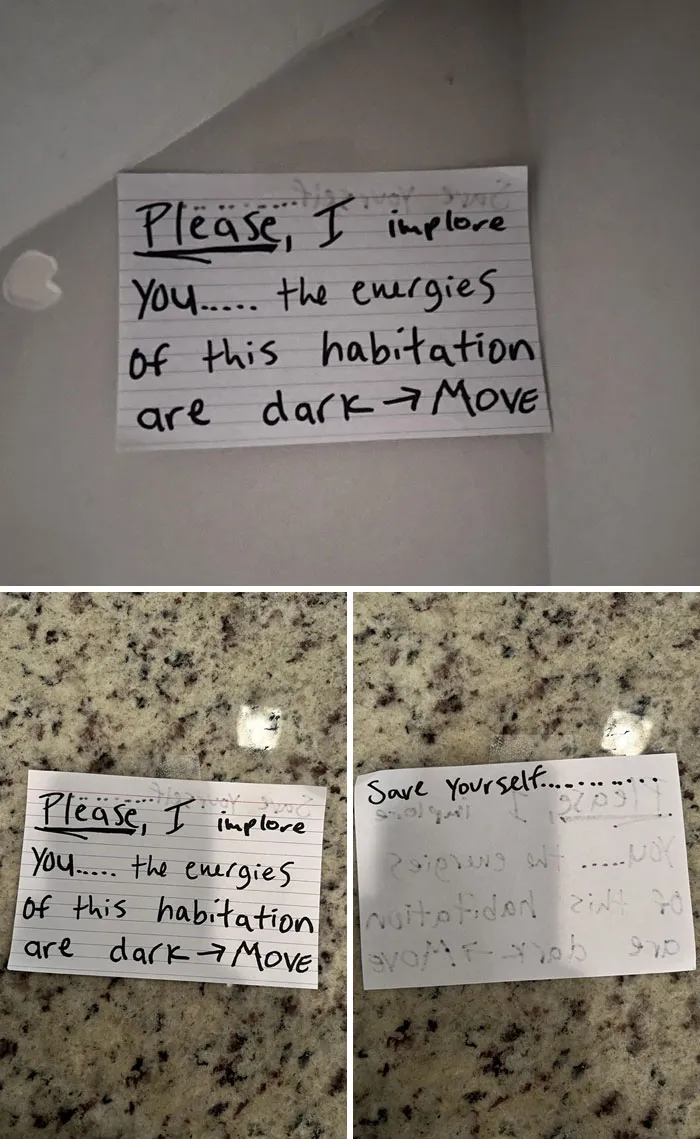 Please, I implore
You..... the energies
of this habitation
are dark → MOVE
Please, I implore
You..... the energies
of this habitation
are dark → MOVE
Save Yourself...........